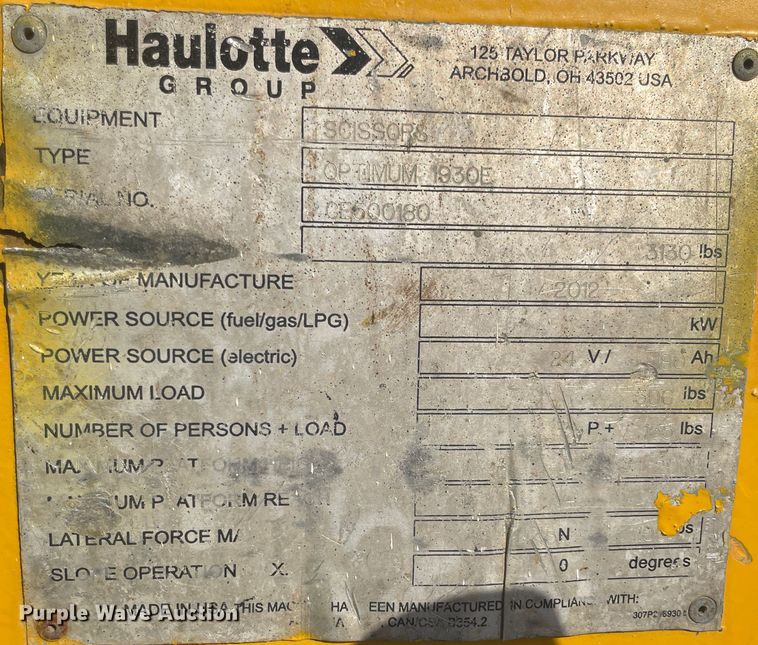 Haulotte
GROUP
125 TAYLOR PARKWAY
ARCHBOLD, OH 43502 USA
EQUIPMENT SCISSORS
TYPE OPTIMUM 1930E
SERIAL NO.
3130 lbs
YEAR OF MANUFACTURE 2012
POWER SOURCE (fuel/gas/LPG) kW
POWER SOURCE (electric) 24 V / Ah
MAXIMUM LOAD lbs
NUMBER OF PERSONS + LOAD P + lbs
MAXIMUM PLATFORM
MAXIMUM PLATFORM RE
LATERAL FORCE MA N
SLOPE OPERATION X. 0 degrees
MADE IN USA THIS MAC HA EEN MANUFACTURED IN COMPLIANC WITH:
CAN/CSA B354.2
Purple Wave Auction